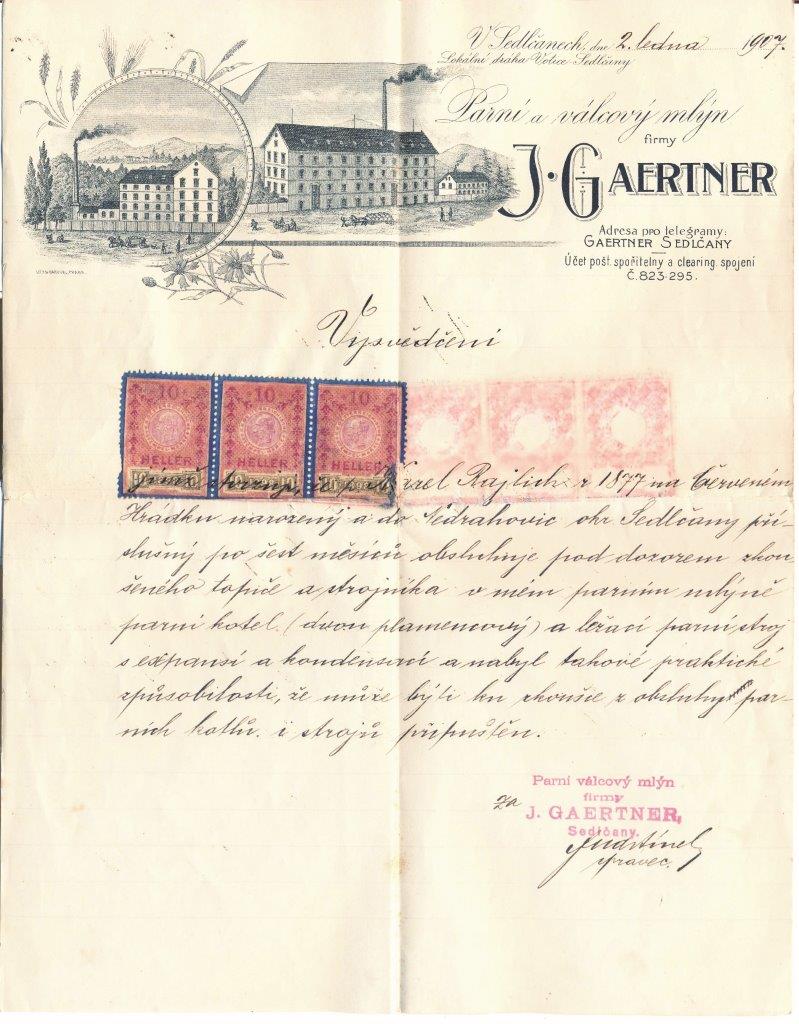 V Sedlčanech, dne 2. ledna 1907.
Lokální dráha Votice-Sedlčany
Parní a válcový mlýn
firmy
J. GAERTNER
Adresa pro telegramy:
GAERTNER SEDLČANY
Účet pošt. spořitelny a clearing. spojení
Č. 823·295.
Vysvědčení
10 10 10
HELLER HELLER HELLER
Jímž Karel Rajlich r 1877 na Červeném
Hrádku narozený a do Nedrahovic okr Sedlčany pří-
slušný po šest měsíců obsluhuje pod dozorem zkou-
šeného topiče a strojníka v mém parním mlýně
parní kotel (dvou plamencový) a ležací parní stroj
s expansí a kondensací a nabyl takové praktické
způsobilosti, že může býti ku zkoušce z obsluhy par-
ních kotlů i strojů připuštěn.
Parní válcový mlýn
firmy
za J. GAERTNER,
Sedlčany.